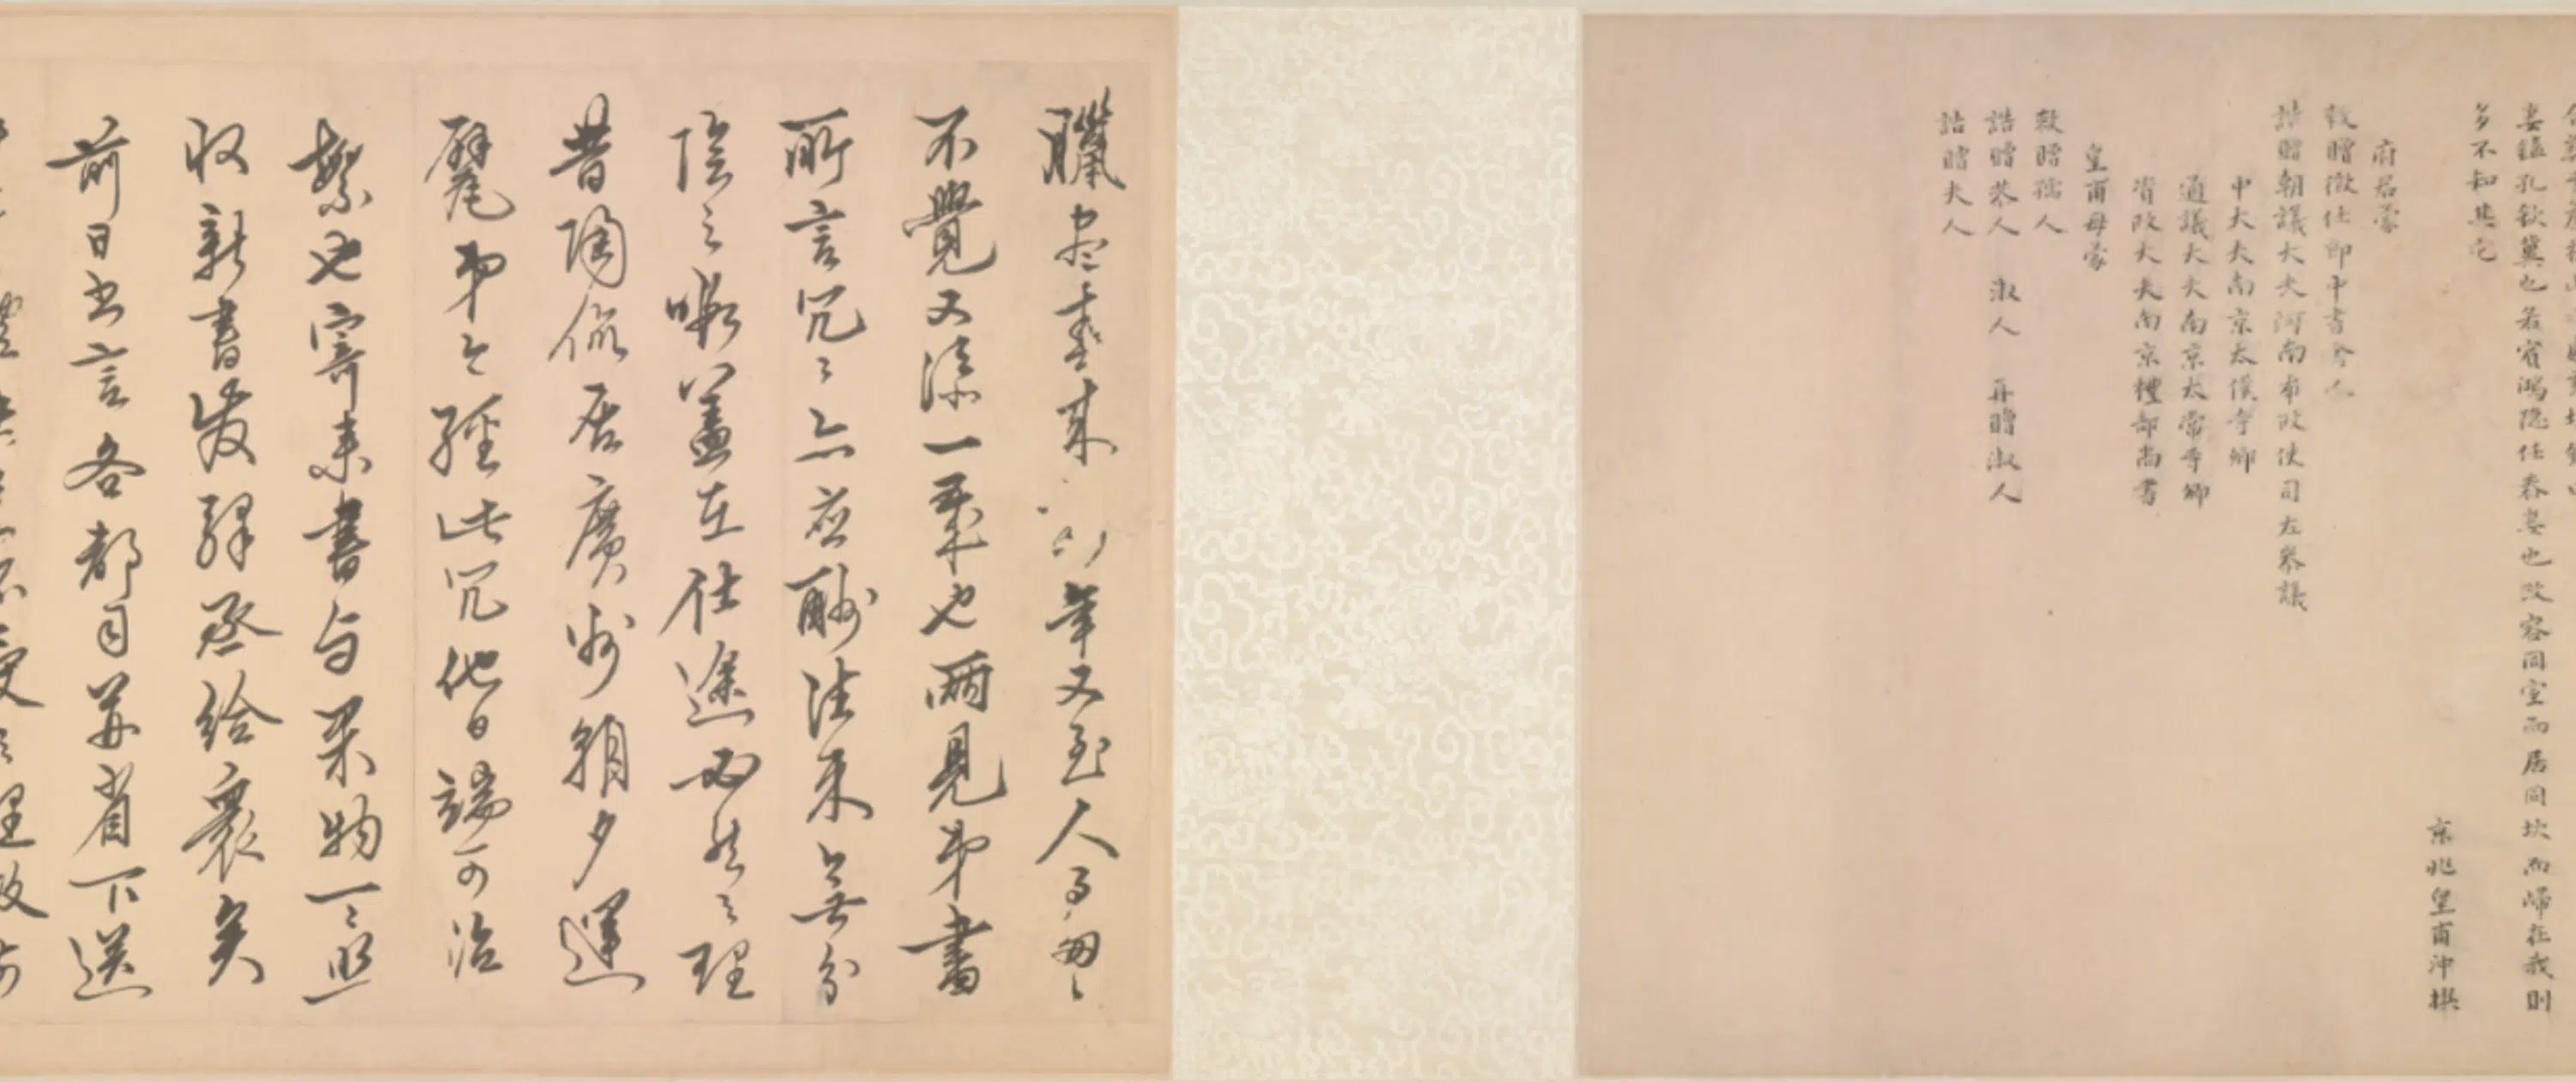 妻猛孔欽冀也若賓鴻隱任春妻也改容同室而居同坎而歸在我則
多不知其它
京兆皇甫沖撰
府君蒙
敕贈徵仕郎中書舍人
誥贈朝議大夫河南布政使司左參議
中大夫南京太僕寺卿
通議大夫南京太常寺卿
資政大夫南京禮部尚書
皇甫母蒙
敕贈孺人
誥贈恭人 淑人 再贈淑人
誥贈夫人
臘盡春來 年又至人事匆々
不覺又添一歲也兩見弟書
所言冗々亦應酬法朱無分
陰之暇蓋在仕途必然之理
昔陶侃居廣州朝夕運
甓弟之經此冗他日端可治
繁也寄來書与果物一一照
收新書發驛丞給裹矣
前日書言各都司並省下送